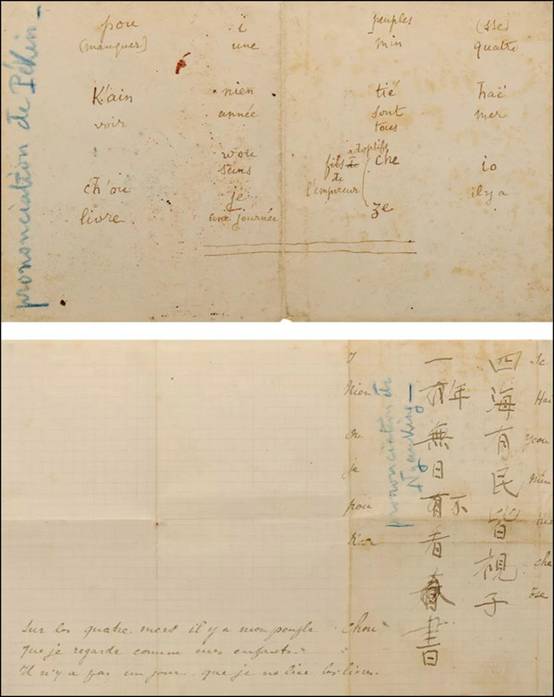 prononciation de Pékin
pou i peuples (sse)
(manquer) une min quatre
K'ain nien tié haï
voir année sont mer
tous
wou adoptifs
fils che io
de il y a
ch'ou je l'empereur
livre une journée ze
prononciation de
四海有民皆視子
一年無日不看書
I
Nien
ou
je
pou
Chou
Hai
you
min
che
tse
Sur les quatre mers il y a mon peuple
que je regarde comme mes enfants.
Il n'y a pas un jour que je ne lise les livres.